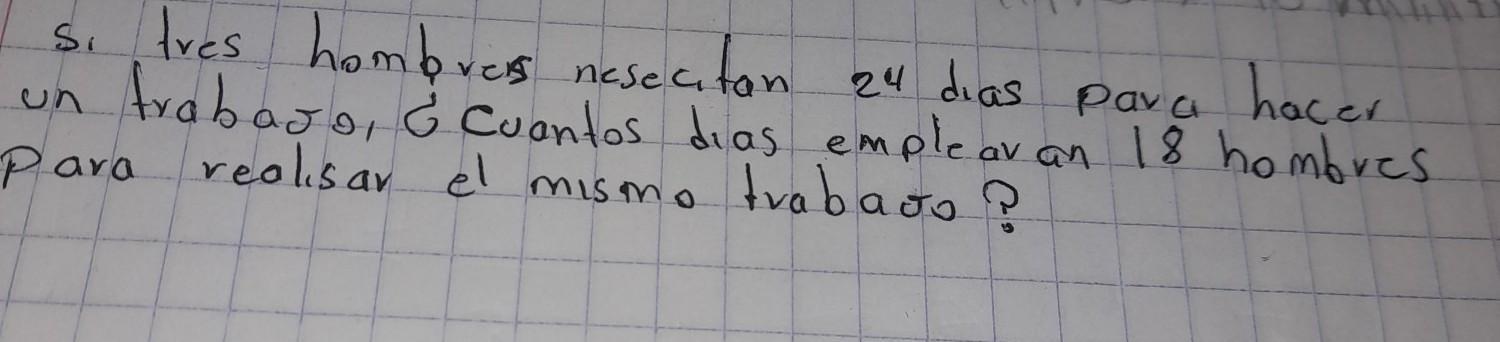 Si tres hombres nesecitan 24 dias para hacer
un trabajo, ¿Cuantos dias emplearan 18 hombres
para realisar el mismo trabajo?